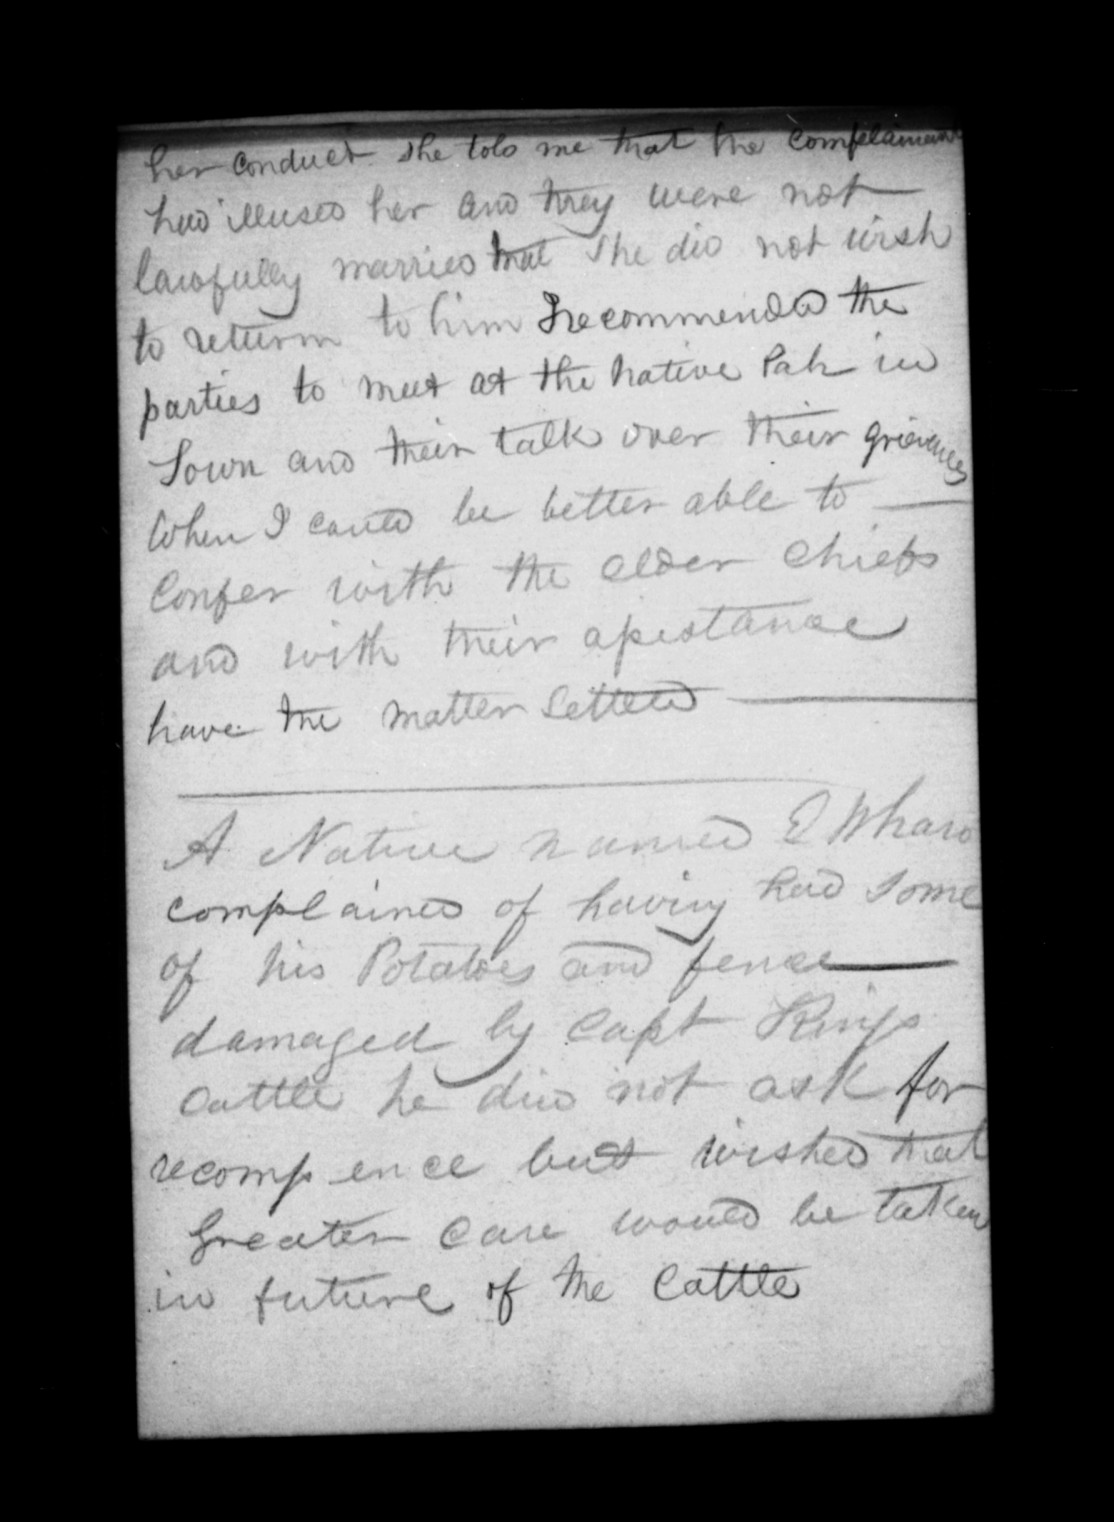 her conduct she told me that the complainant
had illused her and they were not
lawfully married that She did not wish
to return to him I recommended the
parties to meet at the Native Pah in
Town and their talk over their grievances
When I could be better able to
Confer with the elder Chiefs
and with their assistance
have the matter Setteled
A Native named E Wharo
complained of having had some
of his Potatoes and fence
damaged by Capt Kings
Cattle he did not ask for
recompence but wished that
Greater care would be taken
in future of the Cattle